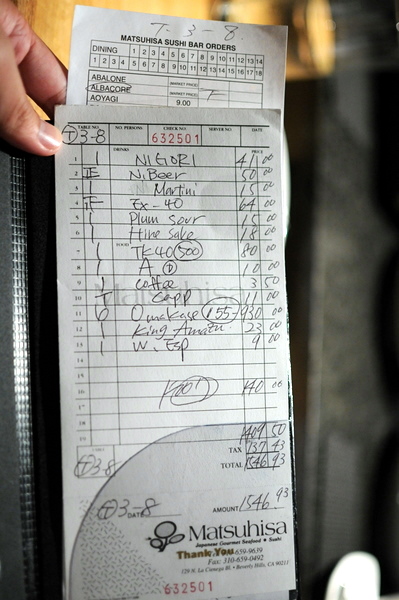 7-3-8
MATSUHISA SUSHI BAR ORDERS
DINING 1 2 3 4 5 6 7 8 9 10 11 12 13 14
1 2 3 4 5 6 7 8 9 10 11 12 13 14 15 16 17 18
ABALONE (MARKET PRICE)
ALBACORE (MARKET PRICE)
AOYAGI 9.00
TABLE NO. NO. PERSONS CHECK NO. SERVER NO. DATE
T3-8 632501
DRINKS PRICE
1 1 NIGORI 41 00
2 N.Beer 50 00
3 1 Martini 15 00
4 Ex-40 64 00
5 1 Plum sour 15 00
6 1 Hire sake 18 00
7 FOOD 1 TK40 500 80 00
8 1 A. 10 00
9 1 coffee 3 50
10 Capp 11 00
11 6 Omakase 155- 930 00
12 1 King Amatu 23 00
13 1 W. Esp 9 00
14
15
16 140 00
17
18
19 1409 50
TAX 137 43
TOTAL 1546 93
T3-8
T3-8 DATE AMOUNT 1546.93
Matsuhisa
Japanese Gourmet Seafood • Sushi
Thank You
659-9639
Fax: 310-659-0492
129 N. La Cienega Bl. • Beverly Hills, CA 90211
632501